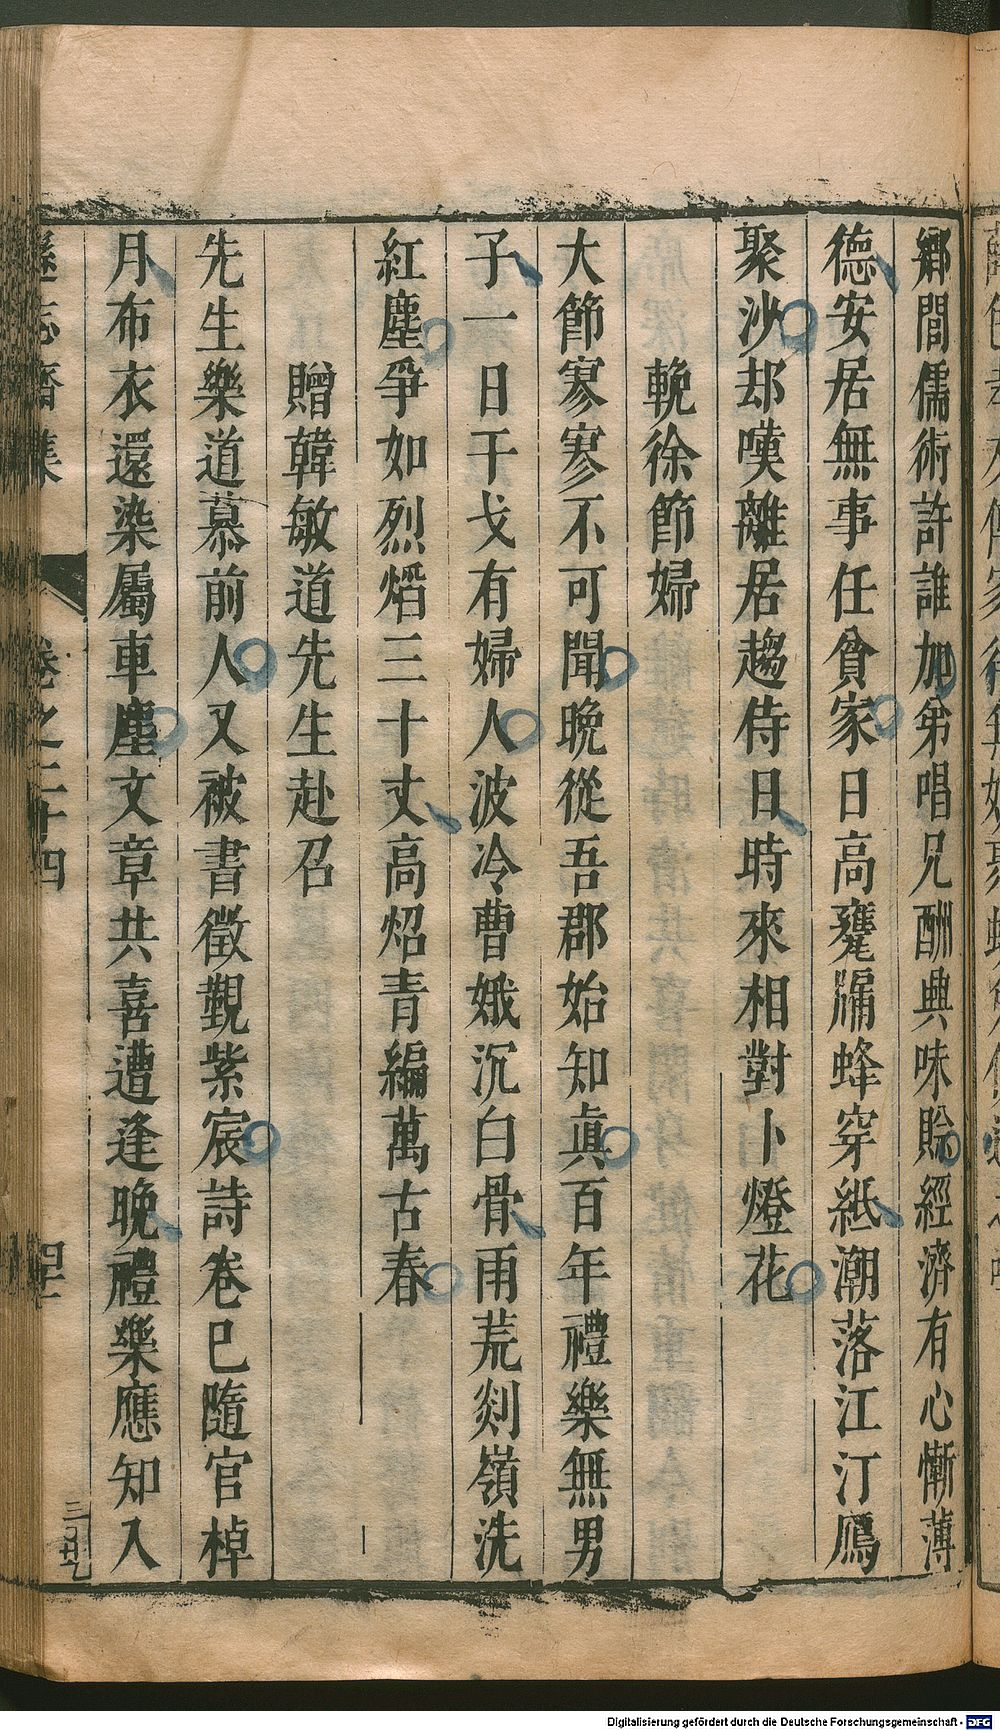 鄉閭儒術許誰加弟唱兄酬典味賒經濟有心慚薄
德安居無事任貧家日高甕牖蜂穿紙潮落江汀鴈
聚沙却嘆離居趨侍日時來相對卜燈花
輓徐節婦
大節寥寥不可聞晚從吾郡始知眞百年禮樂無男
子一日干戈有婦人波冷曹娥沉白骨雨荒剡嶺洗
紅塵爭如烈熖三十丈高炤青編萬古春
贈韓敏道先生赴召
先生樂道慕前人又被書徵覲紫宸詩卷已隨官棹
月布衣還染屬車塵文章共喜遭逢晚禮樂應知入
遜志齋集
卷之二十四
Digitalisierung gefördert durch die Deutsche Forschungsgemeinschaft - DFG